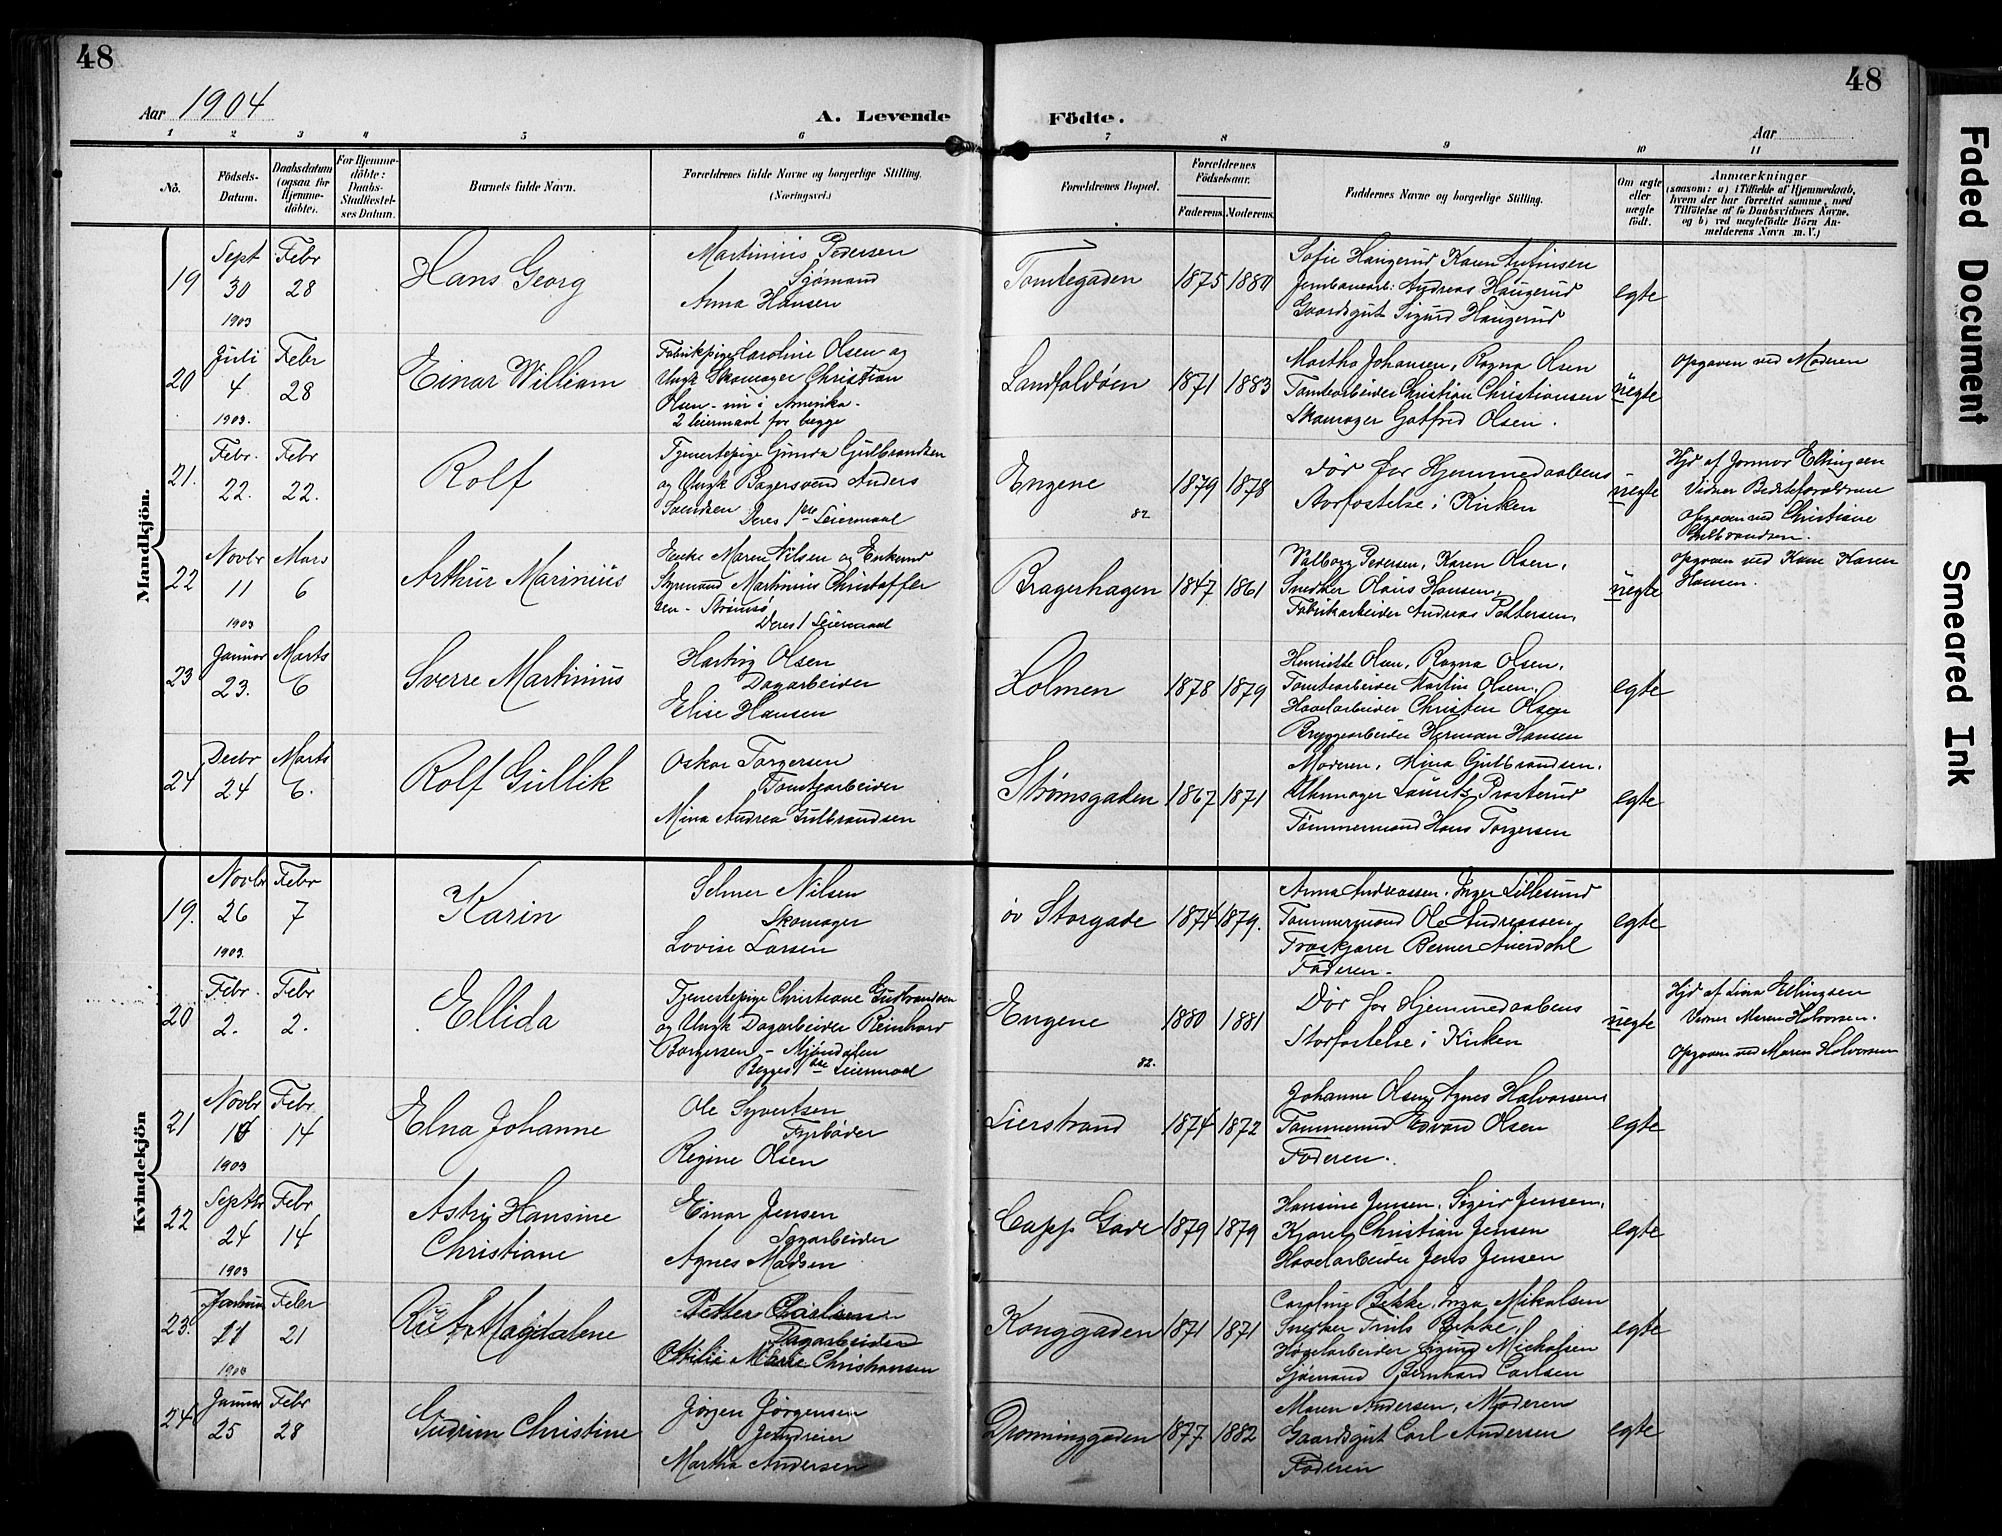 48
48
Aar 1904
A. Levende
Födte.
Aar
1 2 3 4 5 6 7 8 9 10 11
No.
Födsels-Datum.
Daabsdatum (ogsaa for Hjemme-döbte).
For Hjemme-döbte: Daabs-Stadfæstel-ses Datum.
Barnets fulde Navn.
Forældrenes fulde Navne og borgerlige Stilling. (Næringsvei.)
Forældrenes Bopæl.
Forældrenes Födselsaar.
Faderens. Moderens.
Faddernes Navne og borgerlige Stilling.
Om ægte eller uægte født.
Anmærkninger
(saasom: a) i Tilfælde af Hjemmedaab,
hvem der har forrettet samme, med
Tilföielse af to Daabsvidners Navne,
og b) ved uægtefödte Börn An-
melderens Navn m. V.)
Mandkjön.
19
Sept 30 1903
Febr 28
Hans Georg
Martinius Pedersen
Sjømand
Anna Hansen
Tomtegaden
1875 1880
Sofie Haugerud Karen Antonsen
Jernbanearb: Andreas Haugerud
Gaardsgut Sigurd Haugerud
egte
20
Juli 4. 1903.
Febr 28
Einar William
Fabrikpige Caroline Olsen og
Ungk Skomager Christian
Olsen - nu i Amerika -
2 Leiermaal for begge
Landfaldøen
1871 1883
Martha Johansen, Ragna Olsen
Tomtearbeider Christian Christiansen
Skomager Gotfred Olsen.
uegte
Opgaven ved Moderen
21.
Febr. 22.
Febr 22.
Rolf
Tjenestepige Gunda Gulbrandsen
og Ungk Bagersvend Anders
Svendsen Deres 1ste Leiermaal
Engene
82
1879 1878
Dør før Hjemmedaabens
Storfæstelse i Kirken
uegte
Hjd af Jormor Ellingsen
Vidner Bedsteforældrene
Opgaven ved Christiane
Gulbrandsen.
22
Novbr 11 1903
Mars 6
Arthur Marinius
Enke Maren Nilsen og Enkemd
Styrmand Martinius Christoffer
sen - Strømsø
Deres 1 Leiermaal
Bragerhagen
1847 1861
Valborg Pedersen, Karen Olsen,
Snedker Olaus Hansen,
Fabrikarbeider Andreas Pettersen,
uegte
Opgaven ved Kone Karen
Hansen.
23
Januar 23.
Marts 6
Sverre Martinius
Hartvig Olsen
Dagarbeider
Elise Hansen
Holmen
1878 1879
Henriette Olsen, Ragna Olsen,
Tomtearbeider Martin Olsen,
Høvelarbeider Christen Olsen
Bryggearbeider Herman Hansen
egte
24
Decbr 24
Marts 6.
Rolf Gullik
Oskar Torgersen
Tomtearbeider
Mina Andrea Gulbrandsen
Strømsgaden
1867 1871
Moderen, Mina Gulbrandsen,
Uhrmager Laurits Prasterud
Tømmermand Hans Torgersen
egte
Kvindekjön
19.
Novbr 26 1903
Febr 7
Karin
Selmer Nilsen
Skomager
Lovise Larsen
øv Storgade
1874 1879.
Anna Andreassen, Inger Lillesund
Tømmermand Ole Andreassen,
Faderen -
egte
20
Febr. 2.
Febr 2.
Ellida
Tjenestepige Christiane Gudbrandsen
og Ungk Dagarbeider Reinhard
Borgersen - Mjøndalen
Begges 1ste Leiermaal
Engene
82.
1880 1881
Dør før Hjemmedaabens
Storfæstelse i Kirken
uegte
Hjd af Lina Ellingsen
Vidner Maren Halvorsen.
Opgaven ved Maren Halvorsen
21
Novbr 1903
Febr 14
Elna Johanne
Ole Syvertsen
Fyrbøder
Regine Olsen
Lierstrand
1874 1872
Johanne Olsen, Agnes Halvorsen,
Tømmermd Edvard Olsen
Faderen.
egte
22
Septbr 24 1903
Febr 14
Astri Hansine
Christiane
Einar Jensen
Sagarbeider
Agnes Madsen
Capp Gade
1879 1879
Hansine Jensen, Sigrid Jensen,
Kjørek Christian Jensen
Høvelarbeider Jens Jensen
egte
23.
Januar 11 1903
Febr 21
Ruth Magdalene
Petter Carlsen
Dagarbeider
Ottilie Marie Christiansen
Konggaden
1871 1871
Caroline Bekke, Inga Mikalsen
Snedker Truls Bekke,
Høvelarbeider Sigurd Michalsen
Sjømand Bernhard Carlsen
egte
24
Januar 25
Febr 28
Gudrun Christine
Jørgen Jørgensen
Jerndreier
Martha Andersen
Dronninggaden
1877 1882
Maren Andersen, Moderen
Gaardsgut Carl Andersen
Faderen
egte
Faded Document
Smeared Ink